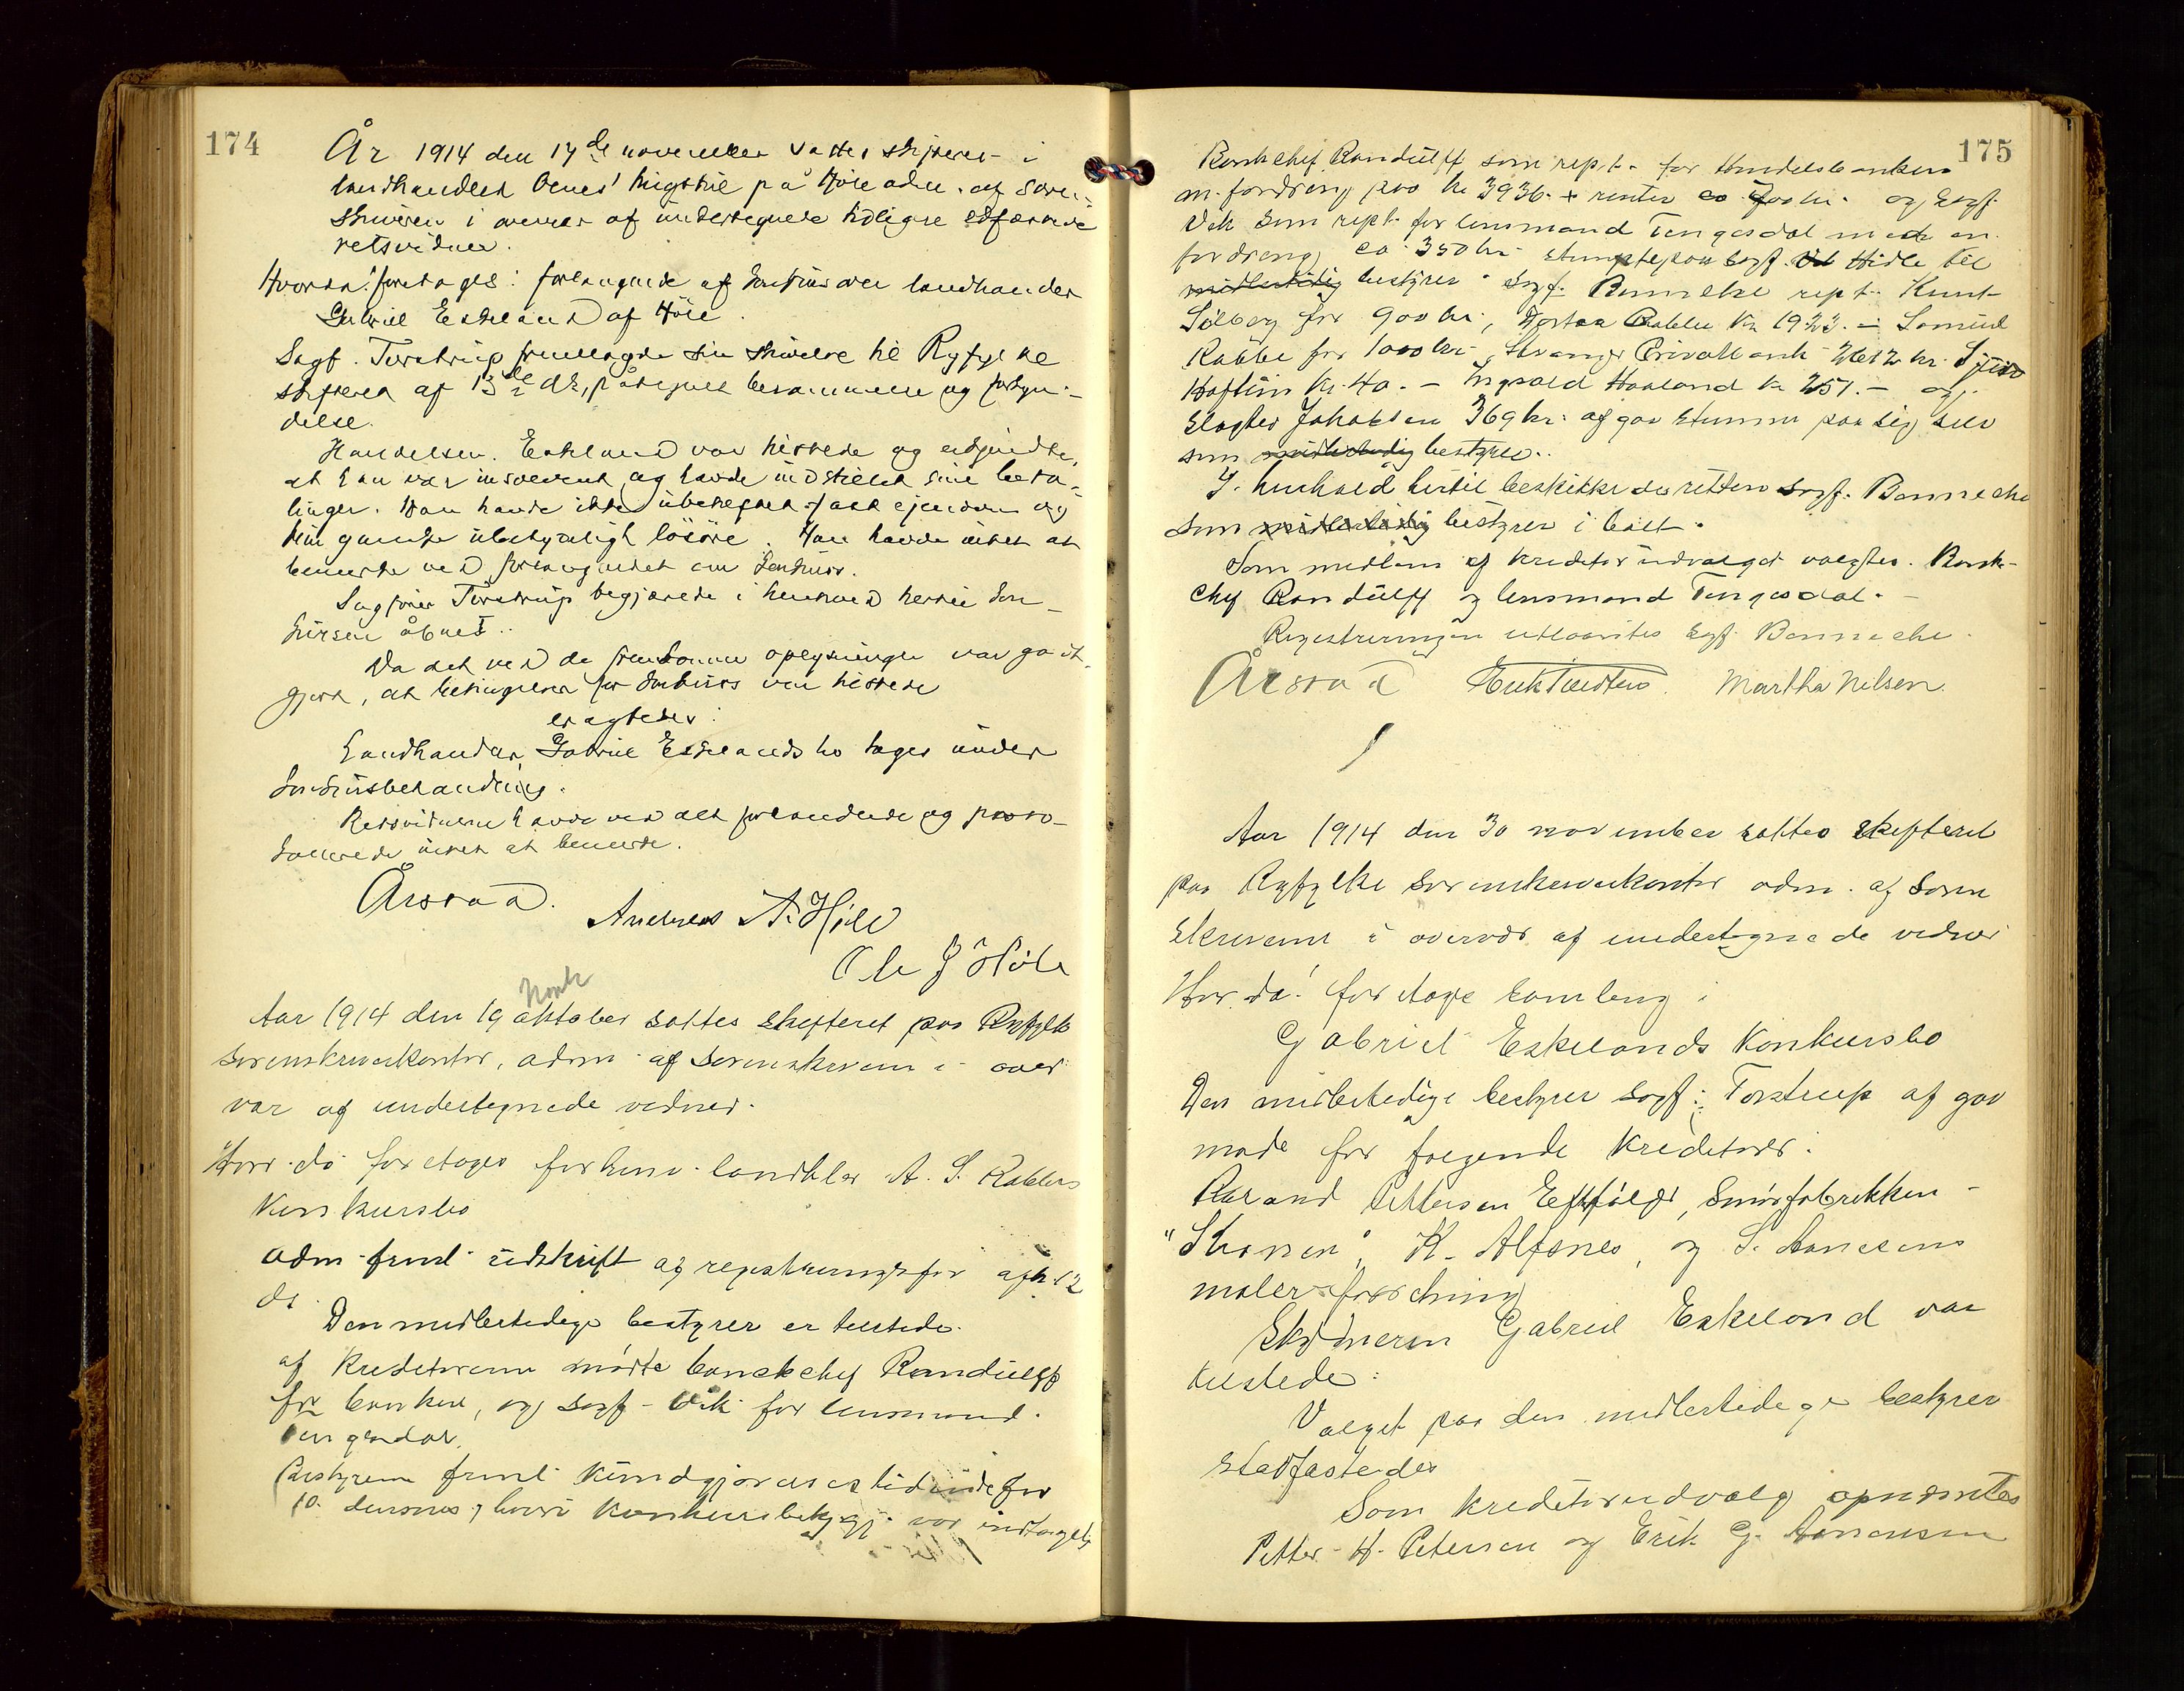 174
År 1914 den 17de november sattes skifteret i
landhandler Oenes' hus på Höle adm. af soren-
skriveren i overvær af undertegnede tidligere edfæstede
retsvidner.
Hvorda! foretoges: forlangende af konkurs over landhandler
Gabriel Eskeland af Höle.
Sagf. Torstrup fremlagde sin skrivelse til Ryfylke
skifteret af 13de ds, påtegnet berammelse og forkyn-
delse.
Handelsm. Eskeland var tilstede og erkjendte,
at han var insolvent og havde indstillet sine beta-
linger. Han havde ikke ubeheftet fast ejendom og
kun ganske ubetydeligt lösöre. Han havde intet at
bemerke ved forlangendet om konkurs.
Sagförer Torstrup begjærede i henhold hertil kon-
kursen åbnet.
Da det ved de fremkomne oplysninger var godt-
gjort, at betingelserne for konkurs var tilstede
eragtedes:
Landhandler Gabriel Eskelands bo tages under
konkursbehandling.
Retsvidnerne havde ved det forhandlede og proto-
kollerede intet at bemerke.
Årstad. Andreas A. Høle
Ole J Höle
Aar 1914 den 19 oktober sattes skifteret paa Ryfylke
sorenskriverkontor, adm. af sorenskriveren i over
vær af undertegnede vidner.
Hvor da foretoges forhenv. landhlr A. S. Rabbes
Konkursbo
Adm freml udskrift af registreringsfor afh. 12
ds.
Den midlertidige bestyrer er tilstede.
af kreditorerne mødte bankchef Randulff
for banken, og sagf. Vik for lensmand
Tengesdal.
Bestyreren freml kundgjørelsestidende for
10. dennes, hvori konkursbekjgj. var indtaget
175
Bankchef Randulff som rept. for Handelsbanken
m. fordring paa kr 3936. + renter ca kr. og sagf.
Vik som rept. for lensmand Tengesdal med en
fordring ca 350 kr. stemte paa sagf. Hidle til
midlertidig bestyrer. Sagf. Bonnevie rept. Knut
Silberg for 900 kr., Rabbe kr 1923.- Samuel
Rabbe for 1000 kr. Stavanger Privatbank 2612 kr.
Haftun kr. 40.- Ingvald Haaland kr 251.- og
Slagter Jakobsen 369 kr. afgav stemme paa sig selv
som midlertidig bestyrer.
I henhold hertil beskikkedes retten sagf. Bonnevie
som midlertidig bestyrer i boet.
Som medlem af kreditorudvalget valgtes. Bank-
chef Randulff og lensmand Tengesdal.
Registreringen udlaantes sagf. Bonnevie.
Årstad Martha Nilsen.
Aar 1914 den 30 november sattes skifteret
paa Ryfylke sorenskriverkontor adm. af soren
skriveren i overvær af undertegnede vidner
Hvor da! foretoges samling i
Gabriel Eskelands Konkursbo
Den midlertidige bestyrer sagf. Torstrup afgav
møde for følgende kreditorer:
Petersen Eftfølgr, Smørfabrikken
"Kronen", K. Alfsnes, og S. Aanesens
malerforretning
Skyldneren Gabriel Eskeland var
tilstede.
Valget paa den midlertidige bestyrer
stadfæstedes
Som kreditorudvalg opnævntes
Petter H. Petersen og Erik G. Aanensen